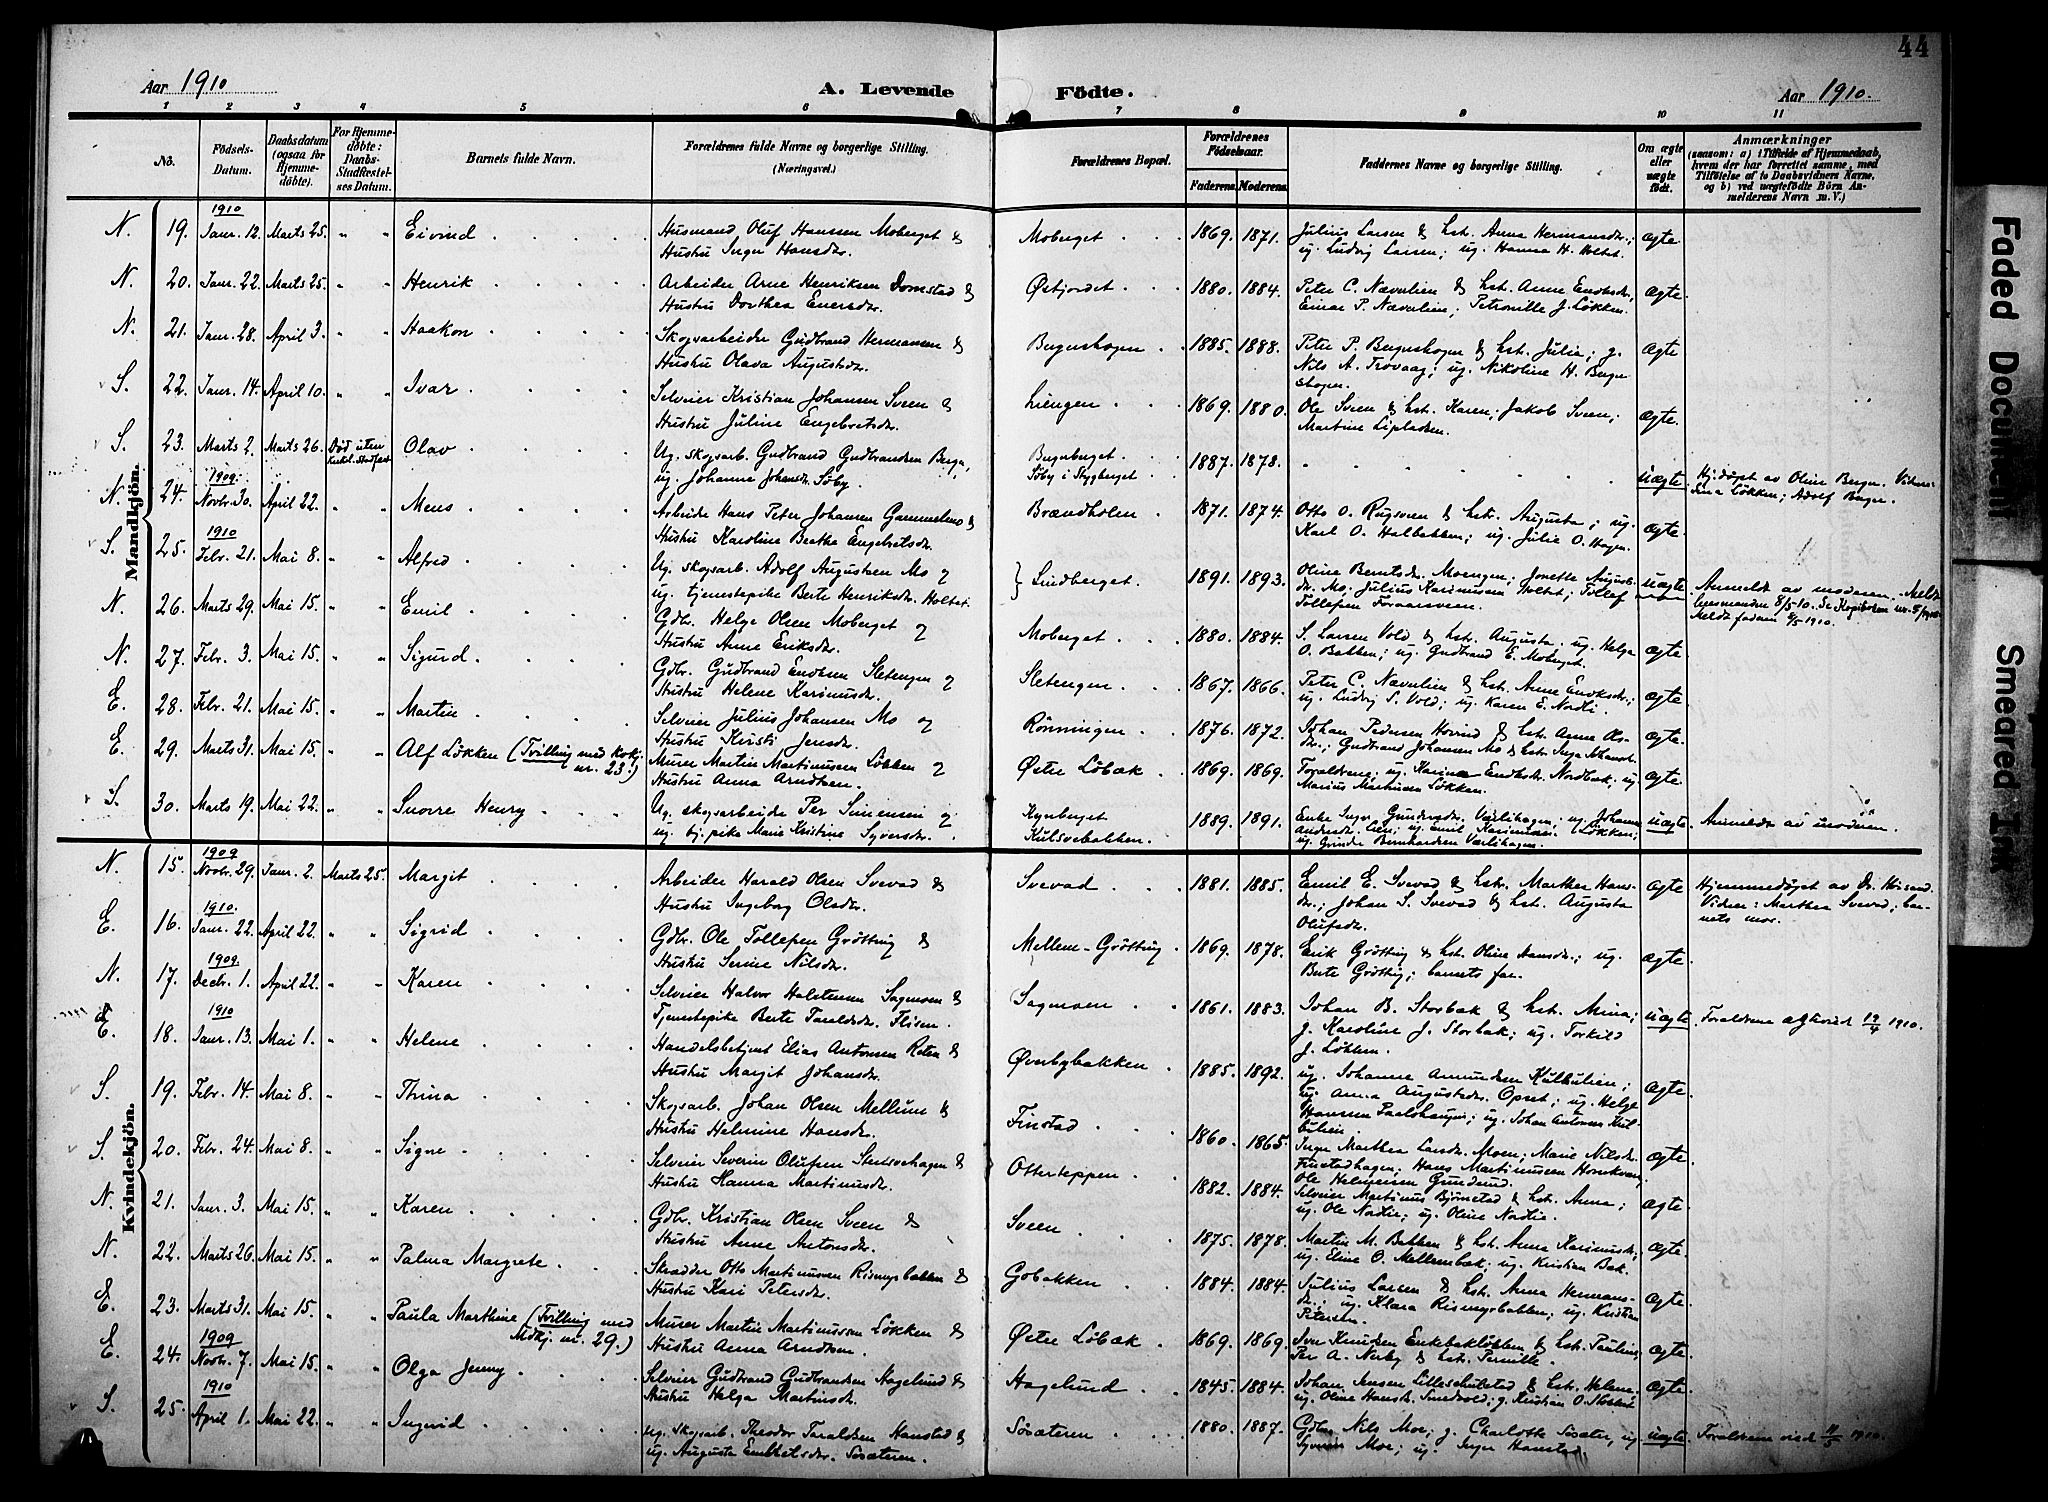 44
Aar 1910
A. Levende Födte.
Aar 1910.
1 2 3 4 5 6 7 8 9 10 11
No.
Födsels-Datum.
Daabsdatum (ogsaa for Hjemme-döbte).
For Hjemme-döbte: Daabs-Stadfæstel-ses Datum.
Barnets fulde Navn.
Forældrenes fulde Navne og borgerlige Stilling.
(Næringsvei.)
Forældrenes Bopæl.
Forældrenes Födselsaar.
Faderens. Moderens.
Faddernes Navne og borgerlige Stilling.
Om ægte eller uægte födt.
Anmærkninger
(saasom: a) i Tilfælde af Hjemmedaab,
hvem der har forrettet samme, med
Tilföielse af to Daabsvidners Navne,
og b) ved uægtefödte Börn An-
melderens Navn m. V.)
Mandkjön.
N. 19. 1910 Janr. 12. Marts 25. " " Eivind
Husmand Oluf Hansen Moberget &
Hustru Inger Hansdr.
Moberget 1869. 1871.
Julius Larsen & hst. Anna Hermansdr.;
ug. Ludvig Larsen; ug. Hanna H. Holtet.
ægte.
N. 20. Janr. 22. Marts 25. " " Henrik
Arbeider Arne Henriksen Domstad &
Hustru Dorthea Enersdr.
Østjordet 1880. 1884.
Peter C. Næverlien & hst. Anne
Einar P. Næverlien; Petronille J. Løkken.
ægte.
N. 21. Janr. 28. April 3. " " Haakon
Skogsarbeider Gudbrand Hermansen &
Hustru Olava Augustsdr.
Bergershagen 1885. 1888.
Peter P. Bergershagen & hst. Julia; g.
Nils A. Trovaag; ug. Nikoline H. Berger-
shagen.
ægte
S. 22. Janr. 14. April 10. " " Ivar
Selveier Kristian Johansen Sveen &
Hustru Juline Engebretsdr.
Liengen 1869. 1880.
Ole Sveen & hst. Karen; Jakob Sveen;
Martine
ægte.
S. 23. Marts 2. Marts 26. Død uten kirkl. stadfæst. Olav
Ug. skogsarb. Gudbrand Gudbrandsen Berger,
ug. Johanne Johansdr. Søby.
Bergerberget
Søby i Stygberget
1887. 1878.
uægte.
Hj.døpt av Oline Berger. Vidner:
Lina Løkken; Adolf Berger.
N. 24. 1909. Novbr. 30. April 22. " " Mens
Arbeider Hans Peter Johansen Gammelmo &
Hustru Karoline Beathe Engebretsdr.
Brændholen 1871. 1874.
Otto O. Rugsveen & hst. Augusta; ug.
Karl O. Halbakken; ug. Julie O. Hagen.
ægte.
S. 25. 1910 Febr. 21. Mai 8. " " Alfred
Ug. skogsarb. Adolf Augustsen Mo og
ug. tjenestepike Berte Henriksdr. Holtet.
Lindberget. 1891. 1893.
Oline Berntsdr. Moengen; Jonette August-
dr. Mo. Julius Karinussen Holtet; Tollef
Tollefsen Foraarsveen.
uægte
Anmeldt av moderen. Meldt
lensmanden 8/5-10. Se Kopiboken
Meldt fadern 1910.
N. 26. Marts 29. Mai 15. " " Emil
Gdbr. Helge Olsen Moberget og
Hustru Anne Eriksdr.
Moberget 1880. 1884.
S. Larsen Vold & hst. Augusta. ug. Helga
O. Bakken; ug. Gudbrand E. Moberget.
ægte.
N. 27. Febr. 3. Mai 15. " " Sigurd
Gdbr. Gudbrand Endresen Sletengen og
Hustru Helene Karinusdr.
Sletengen 1867. 1866.
Peter C. Næverlien & hst. Anne
ug. Ludvig S. Vold; ug. Karen E.
ægte.
E. 28. Febr. 21. Mai 15. " " Martin
Selveier Julius Johansen Mo og
Hustru Kirsti Jensdr.
Rönningen 1876. 1872.
Johan Pedersen Hovind & hst. Anne Ols-
dr.; Gudbrand Johansen Mo & hst. Inga
ægte.
E. 29. Marts 31. Mai 15. " Alf Løkken (Tvilling med kvkj. nr. 23.)
Murer Martin Martinussen Løkken og
Hustru Anna Arndtsen.
Østre Löbæk 1869. 1869.
Forældrene; ug. Karine Nordbæk; ug.
Marius Martinsen Løkken.
ægte
S. 30. Marts 19. Mai 22. " " Snorre Henry
Ug. skogsarbeider Per Simensen og
ug. tj.pike Marie Kristine Syversdr.
Kynberget
Kulsvebakken.
1889. 1891.
Enke Inger Gundersdr. Værlihagen. ug. Johanne
Løkken;
ug. Gunder Bernhardsen Værlihagen.
uægte
Anmeldt av moderen.
Kvindekjön.
N. 15. 1909 Novbr. 29. Janr. 2. Marts 25. Margit
Arbeider Harald Olsen Svevad &
Hustru Ingeborg Olsdr.
Svevad 1881. 1885.
Emil E. Svevad & hst. Marthea Hans-
dr.; Johan S. Svevad & hst. Augusta
Olufsdr.
ægte
Hjemmedøpt av Dr.
Vidner: Marthea Svevad; bar-
nets mor.
E. 16. 1910. Janr. 22. April 22. " " Sigrid
Gdbr. Ole Tollefsen Grötting &
Hustru Serine Nilsdr.
Mellem-Grötting 1869. 1878.
Erik Grötting & hst. Oline Hansdr.; ug.
Berte Grötting; barnets far.
ægte.
N. 17. 1909. Decbr. 1. April 22. " " Karen
Selveier Halvor Halstensen Sagmoen &
Tjenestepike Berte Taraldsdr. Flisen.
Sagmoen 1861. 1883.
Johan B. Storbæk & hst. Mina;
g. Karoline J. Storbæk; ug. Torkild
J. Løkken.
uægte.
Forældrene ægteviet 19/4 1910.
E. 18. 1910 Janr. 13. Mai 1. " " Helene
Handelsbetjent Elias Antonsen Roten &
Hustru Margit Johansdr.
Øverbybakken 1885. 1892.
ug. Johanne Amundsen Kulbulien;
ug. Anna Augustsdr. Opset; ug. Helge
Hansen Paalshaugen; ug. Johan Antonsen Kul-
bulien.
ægte.
S. 19. Febr. 14. Mai 8. " " Thina
Skogsarb. Johan Olsen Mellum &
Hustru Helmine Hansdr.
Finstad 1860. 1865.
Inger Marthea Larsdr. Moen; Marie Nilsdr.
Finstadhagen; Hans Martinussen Hornkvæn;
Ole Helmersen Gundsund.
ægte.
S. 20. Febr. 24. Mai 8. " " Signe
Selveier Severin Olufsen Stensvehagen &
Hustru Hanna Martinusdr.
Otterteppen 1882. 1884.
Selveier Martinus Björnstad & hst. Anna;
ug. Ole ug. Oline
ægte.
N. 21. Janr. 3. Mai 15. " " Karen
Gdbr. Kristian Olsen Sveen &
Hustru Anne Antonsdr.
Sveen 1875. 1878.
Martin M. Bakken & hst. Anna Karinusdr.;
ug. Eline O. Mellembæk; ug. Kristian Bæk.
ægte.
N. 22. Marts 26. Mai 15. " " Palma Margrete
Skrædder Otto Martinussen Risingsbakken &
Hustru Kari Petersdr.
Gobakken 1884. 1884.
Julius Larsen & hst. Anna Hermans-
dr.; ug. Klara Risingsbakken; ug. Kristian
Petersen.
ægte.
E. 23. Marts 31. Mai 15. " " Paula Marthine (Tvilling med Mdkj. nr. 29.)
Murer Martin Martinussen Løkken &
Hustru Anna Arndtsen.
Østre Löbæk 1869. 1869.
Iver Knudsen Enkebækløkken & hst. Pauline;
Per A. Nerby & hst. Pernille.
ægte.
E. 24. 1909 Novbr. 7. Mai 15. " " Olga Jenny
Selveier Gudbrand Gudbrandsen Hagelund &
Hustru Helga Martinsdr.
Hagelund 1845. 1884.
Johan Jensen Lilleskulstad & hst. Helene;
ug. Oline Hansdr. g. Kristian O.
ægte.
S. 25. 1910 April 1. Mai 22. " " Ingrid
ug. Skogsarb. Theodor Taraldsen Hanstad &
ug. Auguste Embretsdr. Sösæteren.
Sösæteren 1880. 1887.
Gdbr. Nils Moe; g. Charlotte Sösæter; ug.
Syver Moe; ug. Inger Hanstad.
uægte
Forældrene viet 11/5 1910.
Faded Document
Smeared Ink